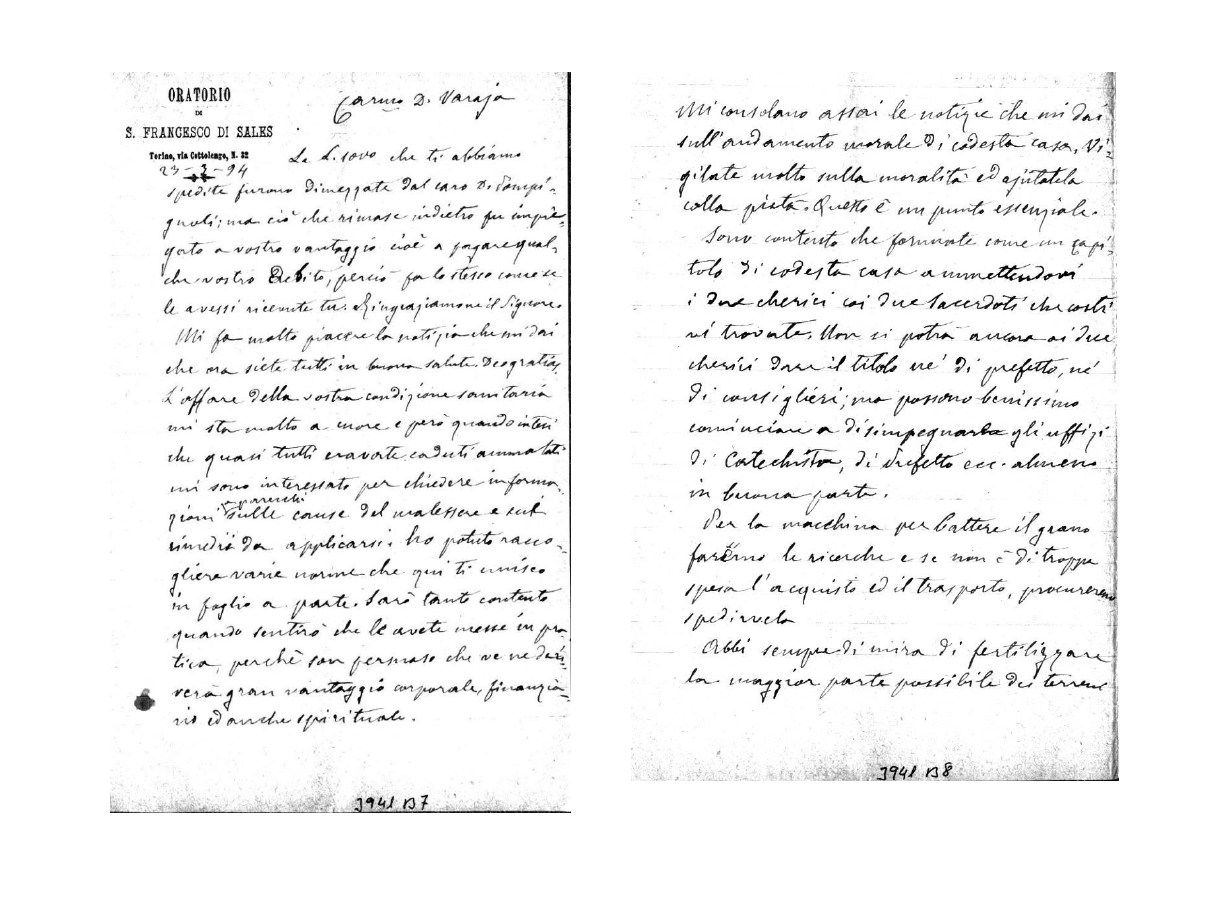 ORATORIO
DI
S. FRANCESCO DI SALES
Torino, via Cottolengo, N. 32
23-3-94
Carmo D. Varaja
Le L. 5000 che ti abbiamo
spedite furono dimezzate dal caro D. Rompi-
gnoli; ma ciò che rimase indietro fu impie-
gato a vostro vantaggio cioè a pagare qual-
che vostro Debito, perciò fa lo stesso come se
le avessi ricevute tu. Ringraziamone il Signore.
Mi fa molto piacere la notizia che mi dai
che ora siete tutti in buona salute. Deo gratias.
L'affare della vostra condizione sanitaria
mi sta molto a cuore e però quando intesi
che quasi tutti eravate caduti ammalati
mi sono interessato per chiedere informa-
zioni a parecchi sulle cause del malessere e sui
rimedii da applicarsi. Ho potuto racco-
gliere varie norme che qui ti unisco
in foglio a parte. Sarò tanto contento
quando sentirò che le avete messe in pra-
tica, perchè son persuaso che ve ne deri-
verà gran vantaggio corporale, finanzia-
rio ed anche spirituale.
3941 B7
Mi consolano assai le notizie che mi dai
sull'andamento morale di codesta casa. Vi-
gilate molto sulla moralità ed ajutatela
colla pietà. Questo è un punto essenziale.
Sono contento che formiate come un capi-
tolo di codesta casa ammettendovi
i due cherici coi due Sacerdoti che costì
vi trovate. Non si potrà ancora ai due
cherici dare il titolo nè di prefetto, nè
di consiglieri; ma possono benissimo
cominciare a disimpegnarla gli uffizi
di Catechista, di Prefetto ecc. almeno
in buona parte.
Per la macchina per battere il grano
faremo le ricerche e se non è di troppa
spesa l'acquisto ed il trasporto, procureremo
spedirvela
Abbi sempre di mira di fertilizzare
la maggior parte possibile dei terreni
3941 B8